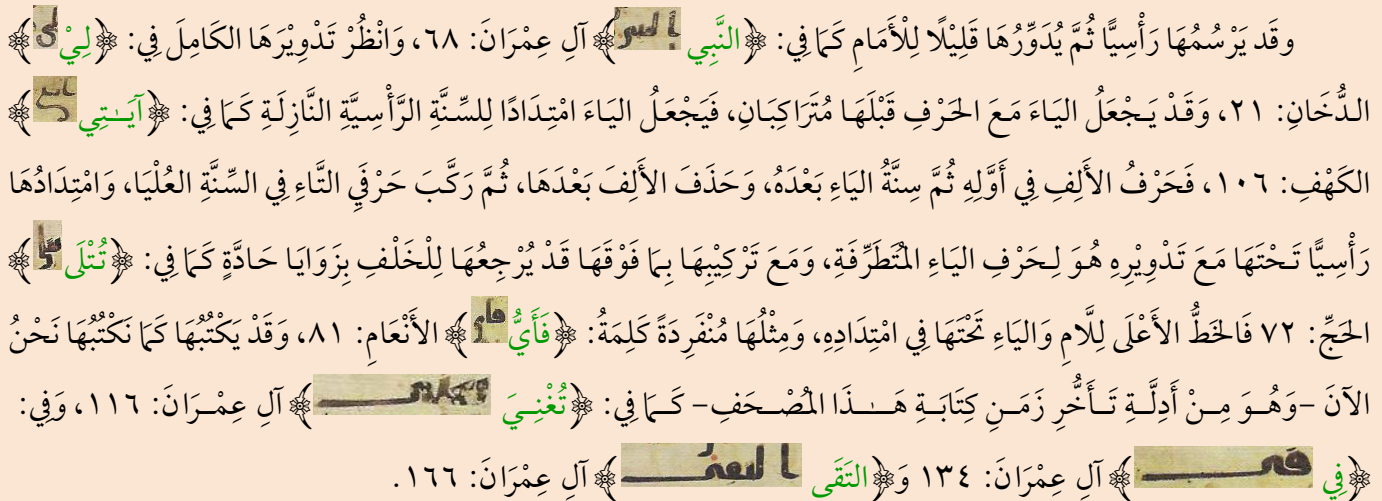 وقَد يَرْسُمُهَا رَأْسِيًّا ثُمَّ يُدَوِّرُهَا قَلِيْلًا لِلْأَمَامِ كَمَا فِي: ﴿النَّبِي ﴾ آلِ عِمْرَانَ: ٦٨، وَانْظُرْ تَدْوِيْرَهَا الكَامِلَ فِي: ﴿لِيْ ﴾
الدُّخَانِ: ٢١، وَقَدْ يَجْعَلُ اليَاءَ مَعَ الحَرْفِ قَبْلَهَا مُتَرَاكِبَانِ، فَيَجْعَلُ اليَاءَ امْتِدَادًا لِلسِّنَّةِ الرَّأْسِيَّةِ النَّازِلَةِ كَمَا فِي: ﴿آيَـٰتِي ﴾
الكَهْفِ: ١٠٦، فَحَرْفُ الأَلِفِ فِي أَوَّلِهِ ثُمَّ سِنَّةُ اليَاءِ بَعْدَهُ، وَحَذَفَ الأَلِفَ بَعْدَهَا، ثُمَّ رَكَّبَ حَرْفَيِ التَّاءِ فِي السِّنَّةِ العُلْيَا، وَامْتِدَادُهَا
رَأْسِيًّا تَحْتَهَا مَعَ تَدْوِيْرِهِ هُوَ لِحَرْفِ اليَاءِ المُتَطَرِّفَةِ، ومَعَ تَرْكِيْبِهَا بِمَا فَوْقَهَا قَدْ يُرْجِعُهَا لِلْخَلْفِ بِزَوَايَا حَادَّةٍ كَمَا فِي: ﴿تُتْلَى ﴾
الحَجِّ: ٧٢ فَالخَطُّ الأَعْلَى لِلَّامِ وَاليَاءِ تَحْتَهَا فِي امْتِدَادِهِ، وَمِثْلُهَا مُنْفَرِدَةً كَلِمَةُ: ﴿فَأَيُّ ﴾ الأَنْعَامِ: ٨١، وَقَدْ يَكْتُبُهَا كَمَا نَكْتُبُهَا نَحْنُ
الآنَ –وَهُوَ مِنْ أَدِلَّةِ تَأَخُّرِ زَمَنِ كِتَابَةِ هَـٰذَا المُصْحَفِ– كَمَا فِي: ﴿تُغْنِيَ ﴾ آلِ عِمْرَانَ: ١١٦، وَفِي:
﴿فِي ﴾ آلِ عِمْرَانَ: ١٣٤ وَ﴿التَقَى ﴾ آلِ عِمْرَانَ: ١٦٦.